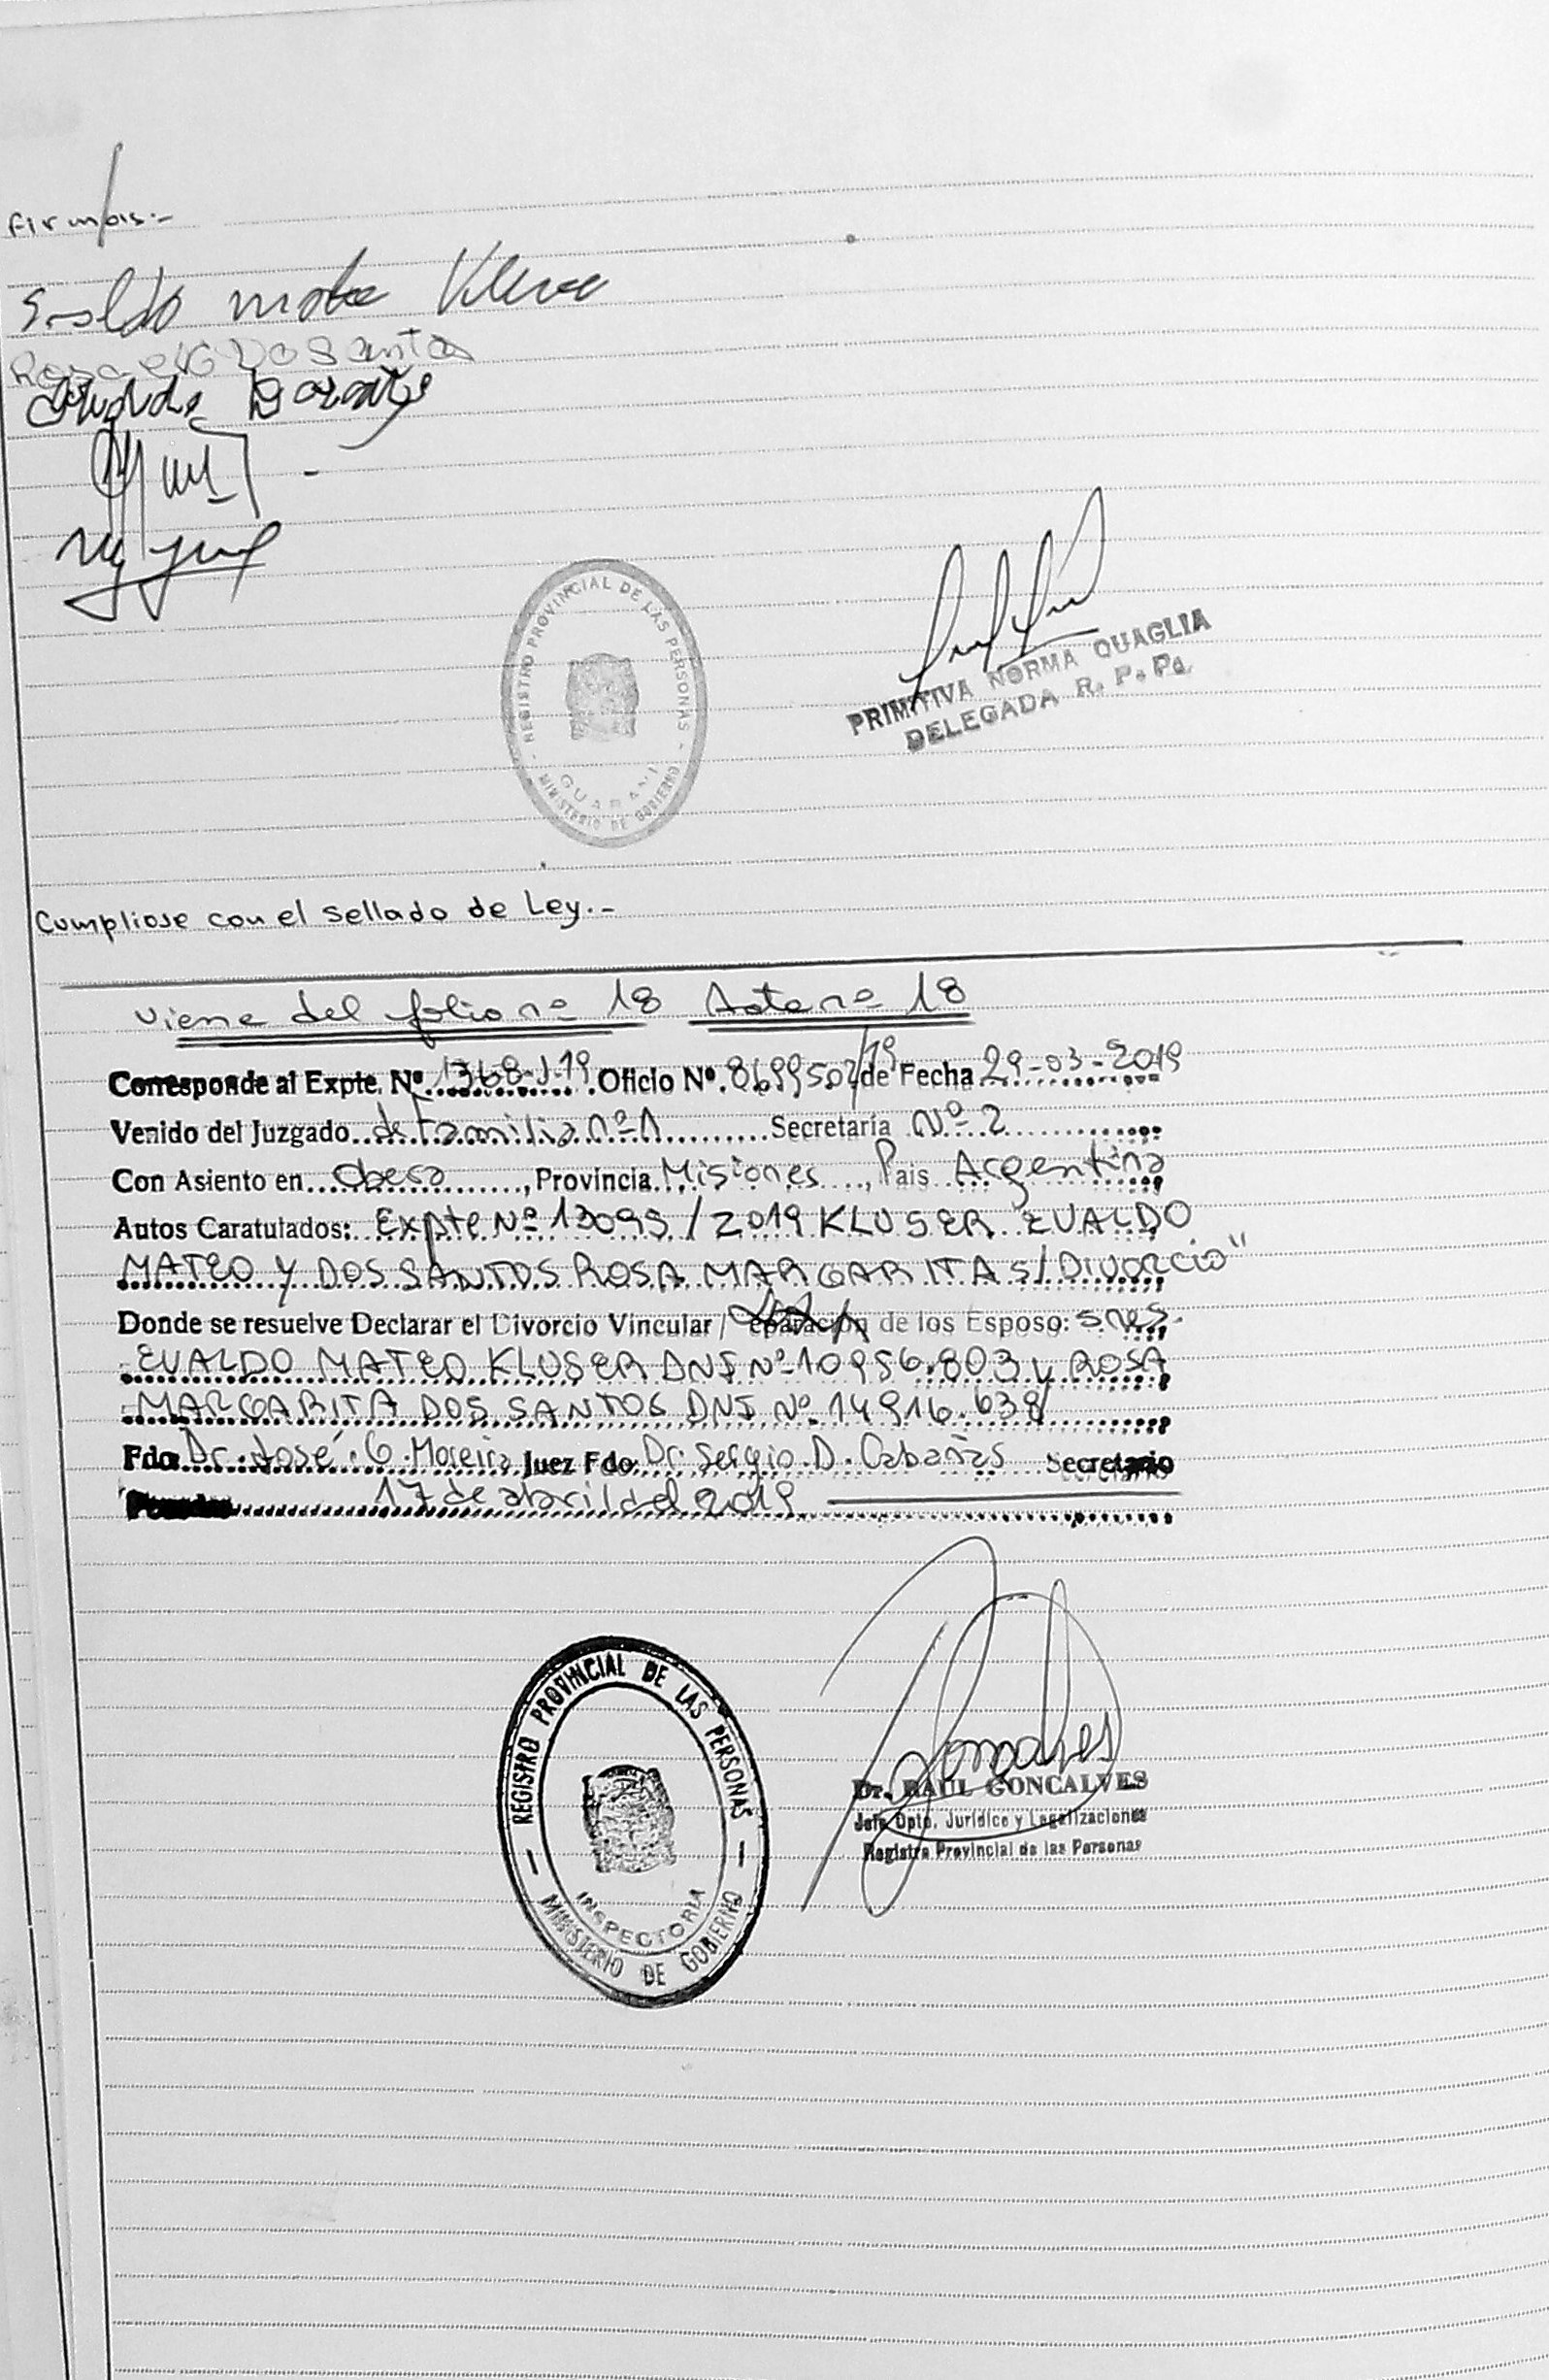 firman:-
REGISTRO PROVINCIAL DE LAS PERSONAS
GUARANI
MINISTERIO DE GOBIERNO
PRIMITIVA NORMA QUAGLIA
DELEGADA R. P. P.
Cumpliose con el sellado de Ley.-
Viene del folio nº 18 Acta nº 18
Corresponde al Expte. Nº 1368-J-19 Oficio Nº. 8699502/19 de Fecha 29-03-2019
Venido del Juzgado de Familia nº 1 Secretaría Nº 2
Con Asiento en Obera, Provincia Misiones, Pais Argentina
Autos Caratulados: Expte Nº 13099/2019 KLUSER EVALDO
MATEO Y DOS SANTOS ROSA MARGARITA S/ Divorcio"
Donde se resuelve Declarar el Divorcio Vincular / eparación de los Esposo: sres.
EVALDO MATEO KLUSER DNI Nº 10956.803 y ROSA
MARGARITA DOS SANTOS DNI Nº 14916.638
Fdo Dr. José G. Moreira Juez Fdo Dr. Sergio D. Cabañas Secretario
17 de abril del 2019
REGISTRO PROVINCIAL DE LAS PERSONAS
INSPECTORIA
MINISTERIO DE GOBIERNO
Dr. RAUL GONCALVES
Jefe Dpto. Jurídico y Legalizaciones
Registro Provincial de las Personas